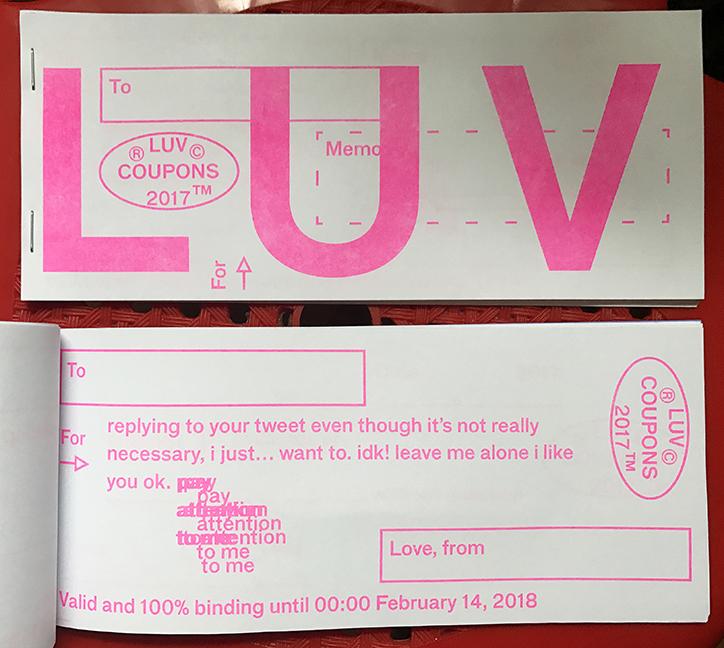 LUV
To
Memo
® LUV ©
COUPONS
2017™
For
To
For
replying to your tweet even though it's not really
necessary, i just... want to. idk! leave me alone i like
you ok. pay
pay
attention
attention
to me attention
to me
to me
Love, from
® LUV ©
COUPONS
2017™
Valid and 100% binding until 00:00 February 14, 2018